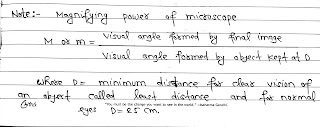 Note:- Magnifying power of microscope
M or m = Visual angle formed by final image
Visual angle formed by object kept at D
where D = minimum distance for clear vision of
an object called least distance and for normal
"You must be the change you want to see in the world." - Mahatma Gandhi
eyes D = 25 cm.